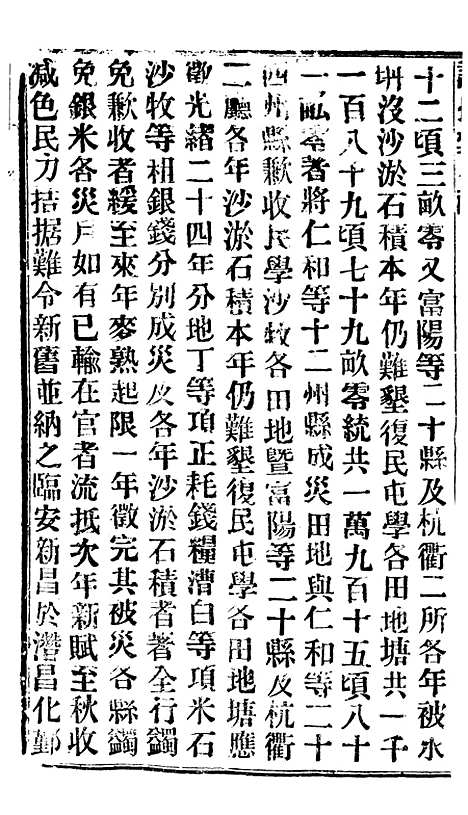 十二頃三畝零又富陽等二十縣及杭衢二所各年被水
坍沒沙淤石積本年仍難墾復民屯學各田地塘共一千
一百八十九頃七十九畝零統共一萬九百十五頃八十
一畝零著將仁和等十二州縣成災田地與仁和等二十
四州縣歉收民學沙牧各田地暨富陽等二十縣及杭衢
二廳各年沙淤石積本年仍難墾復民屯學各田地塘應
徵光緒二十四年分地丁等項正耗錢糧漕白等項米石
沙牧等租銀錢分別成災及各年沙淤石積者著全行蠲
免歉收者緩至來年麥熟起限一年徵完其被災各縣蠲
免銀米各災戶如有已輸在官者流抵次年新賦至秋收
減色民力拮据難令新舊並納之臨安新昌於潛昌化鄞